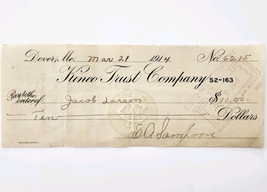 Dover, Mo. Mar 21 1914 No. 6215
Kinco Trust Company 52-163
Pay to the order of Jacob Larson $10.00
Ten Dollars